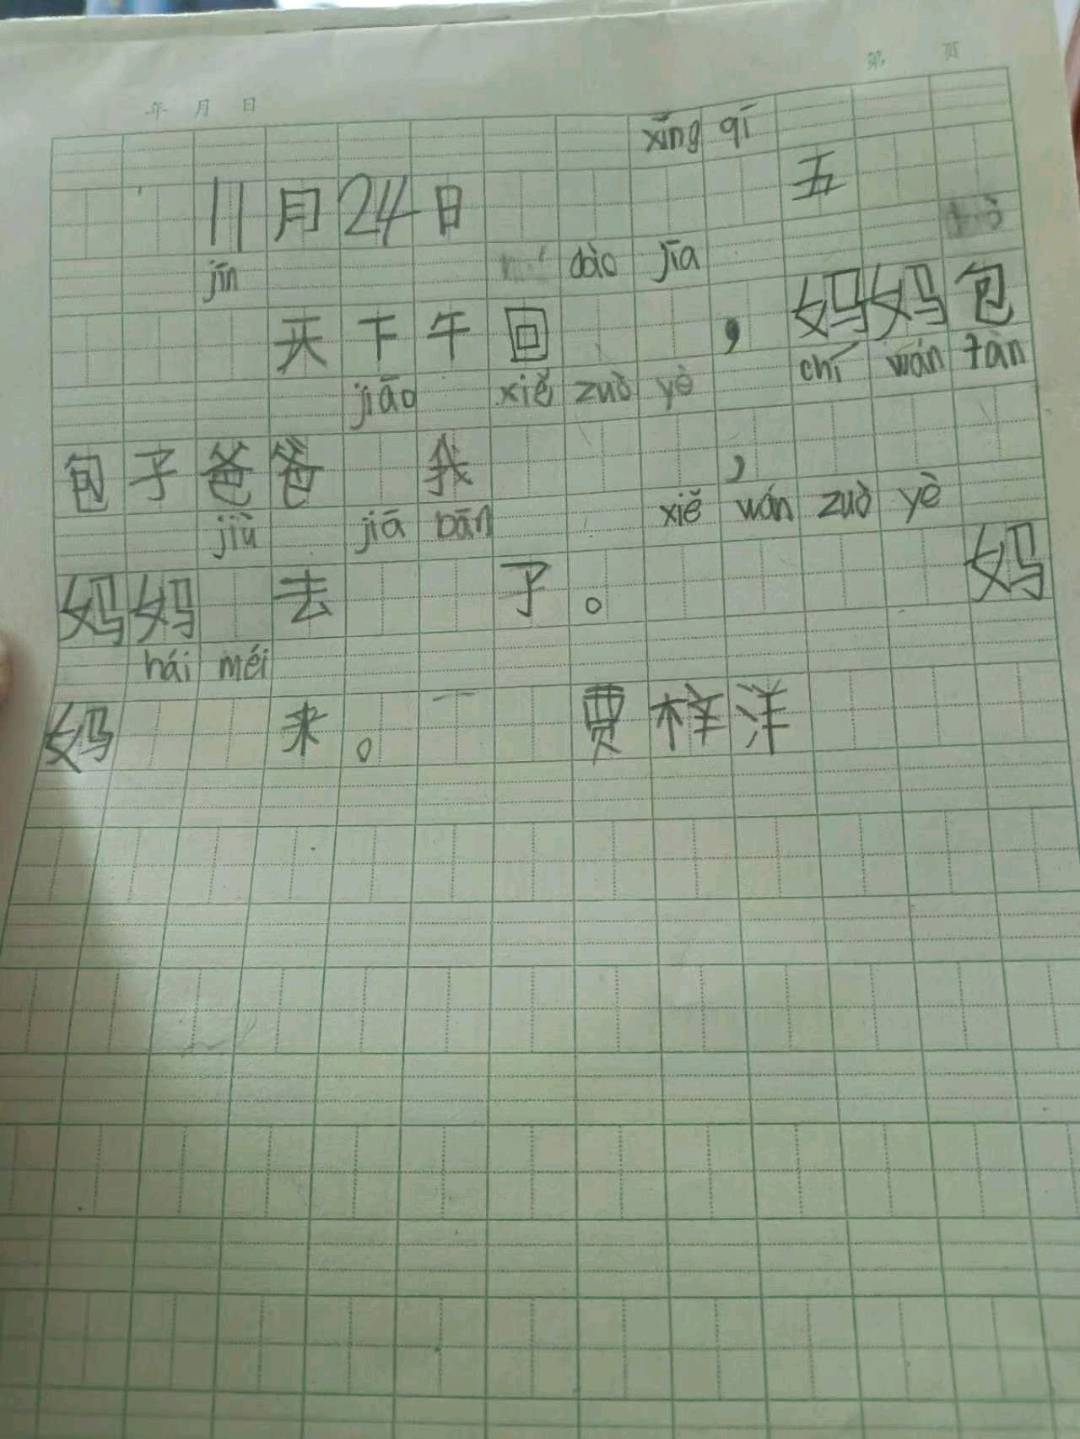 第 页
年 月 日
xīng qī
11月24日 五
jīn dào jiā
天下午回 ，妈妈包
jiāo xiě zuò yè chí wán tàn
包子爸爸 我 ，
jiù jiā bān xiě wán zuò yè
妈妈 去 了。 妈
hái méi
妈 来。 贾梓洋